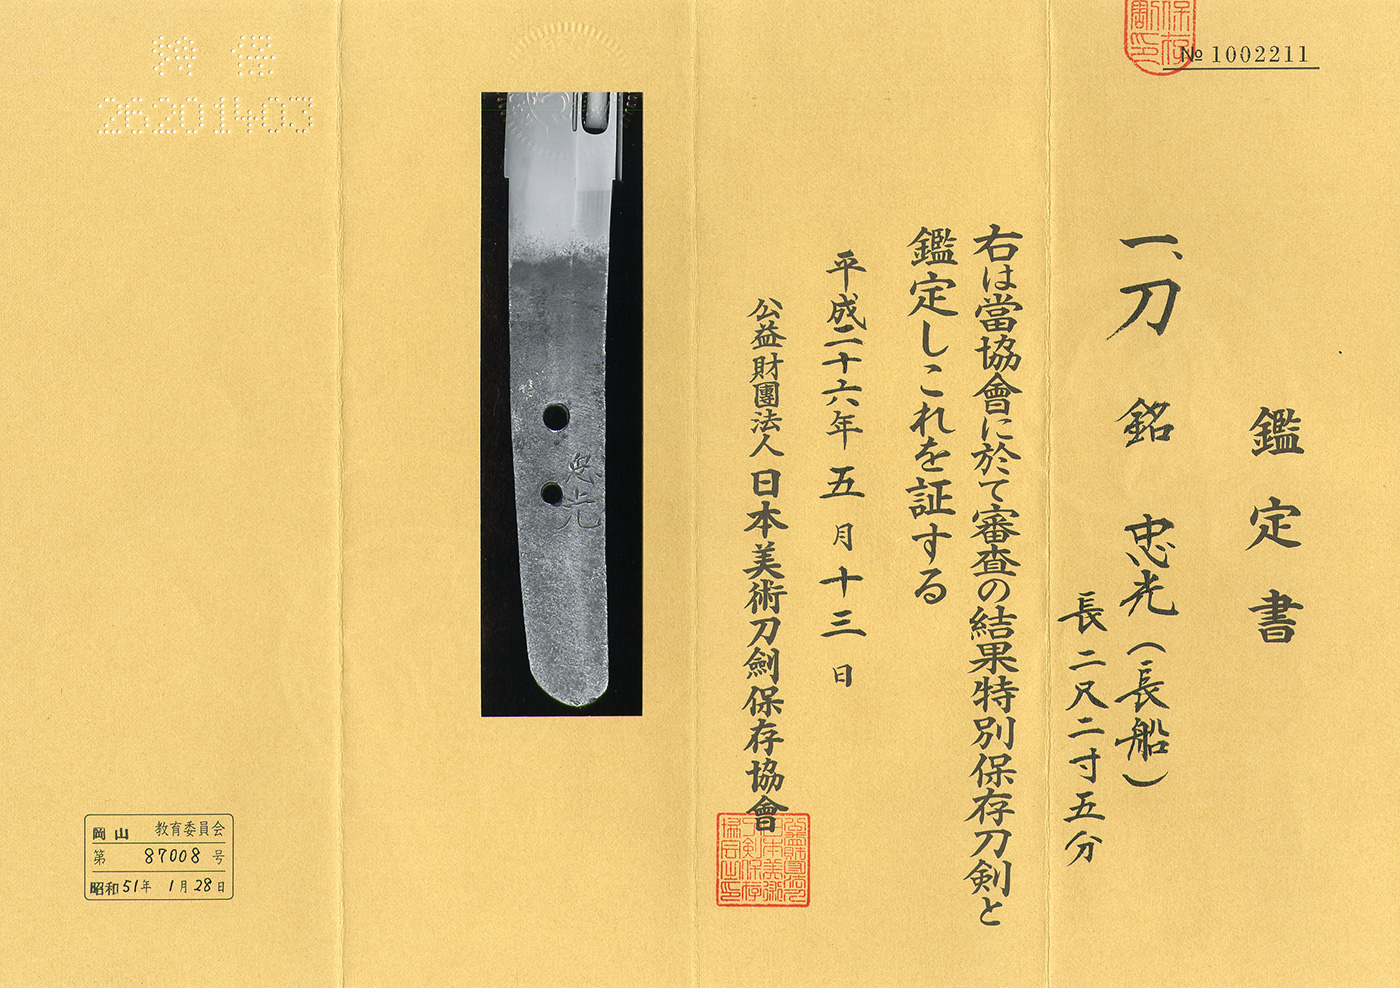 № 1002211
鑑定書
一、刀 銘 忠光(長船)
長二尺二寸五分
右は當協會に於て審査の結果特別保存刀剣と
鑑定しこれを証する
平成二十六年五月十三日
公益財團法人 日本美術刀劍保存協會
忠光
26201403
岡山 教育委員会
第 87008 号
昭和51年 1月28日